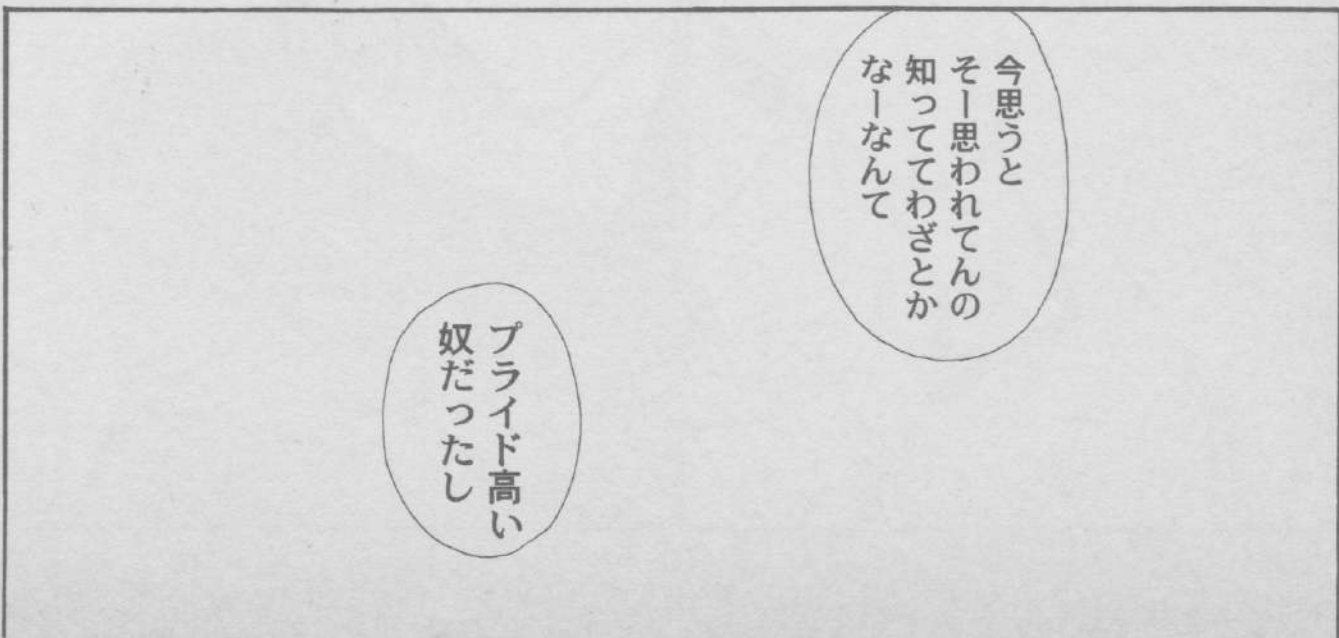 今思うと
そー思われてんの
知っててわざとか
なーなんて
プライド高い
奴だったし